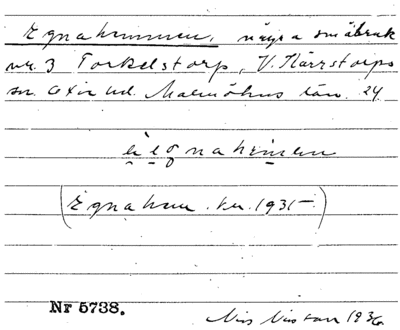 Egnahemmen, några småbruk
nr. 3 Torkelstorp, V. Kärrstorps
sn. Oxie hd. Malmöhus län. 24
(Egnahem. 1931–)
Nr 5738.
Nils Nilsson 1936